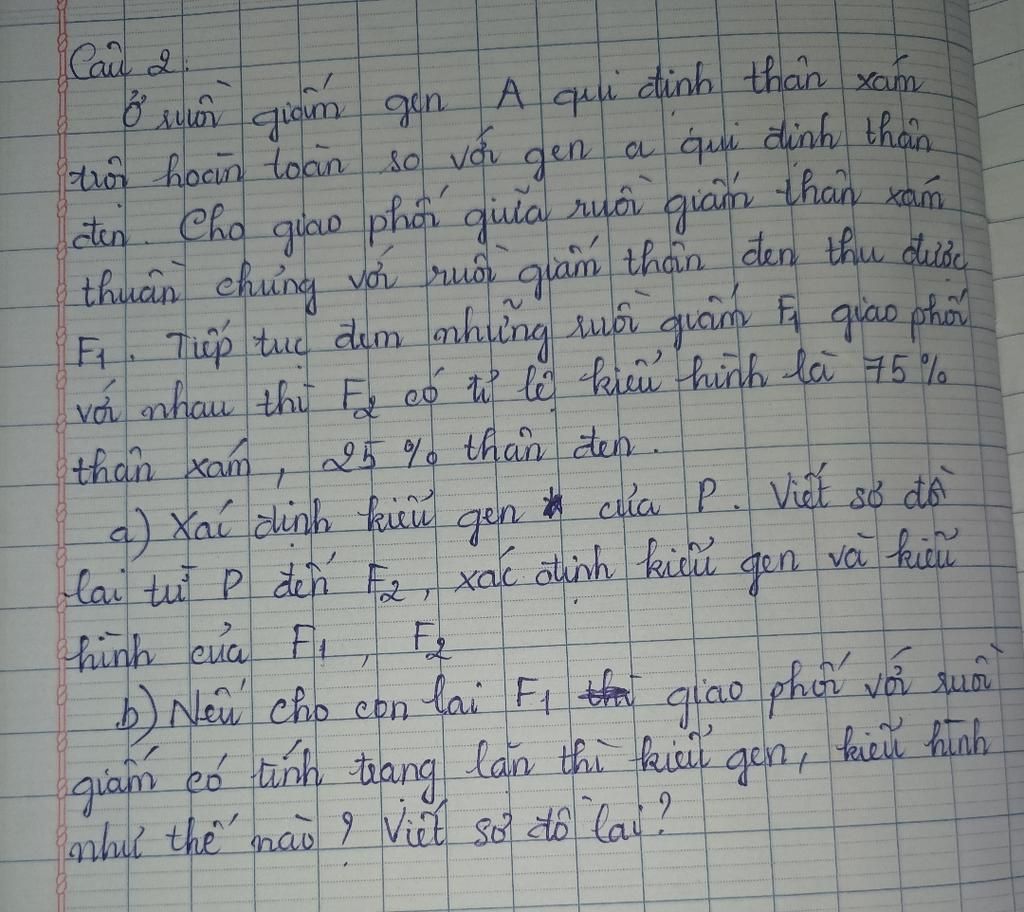 Câu 2.
Ở ruồi giấm gen A qui định thân xám
trội hoàn toàn so với gen a qui định thân
đen. Cho giao phối giữa ruồi giấm thân xám
thuần chủng với ruồi giấm thân đen thu được
F1. Tiếp tục đem những ruồi giấm F1 giao phối
với nhau thì F2 có tỉ lệ kiểu hình là 75%
thân xám, 25% thân đen.
a) Xác định kiểu gen của P. Viết sơ đồ
lai từ P đến F2, xác định kiểu gen và kiểu
hình của F1, F2
b) Nếu cho con lai F1 giao phối với ruồi
giấm có tính trạng lặn thì kiểu gen, kiểu hình
như thế nào? Viết sơ đồ lai?